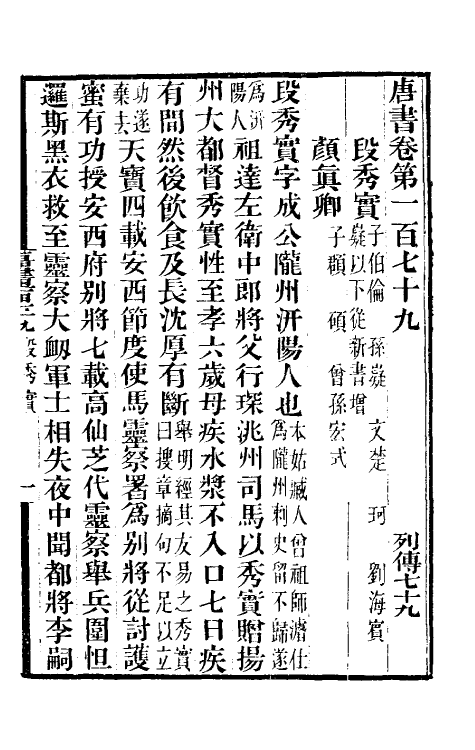 唐書卷第一百七十九　列傳七十九
段秀實子伯倫　孫嶷　文楚　珂　劉海賓
嶷以下從新書增
顏眞卿子頵　碩　曾孫宏式
段秀實字成公隴州汧陽人也本姑臧人曾祖師濬仕
爲隴州刺史留不歸遂
爲汧
陽人祖達左衛中郎將父行琛洮州司馬以秀實贈揚
州大都督秀實性至孝六歲母疾水漿不入口七日疾
有間然後飲食及長沈厚有斷舉明經其友易之秀實
曰搜章摘句不足以立
功遂
棄去天寶四載安西節度使馬靈察署爲別將從討護
蜜有功授安西府別將七載高仙芝代靈察舉兵圍怛
邏斯黑衣救至靈察大衂軍士相失夜中聞都將李嗣
段秀實　一